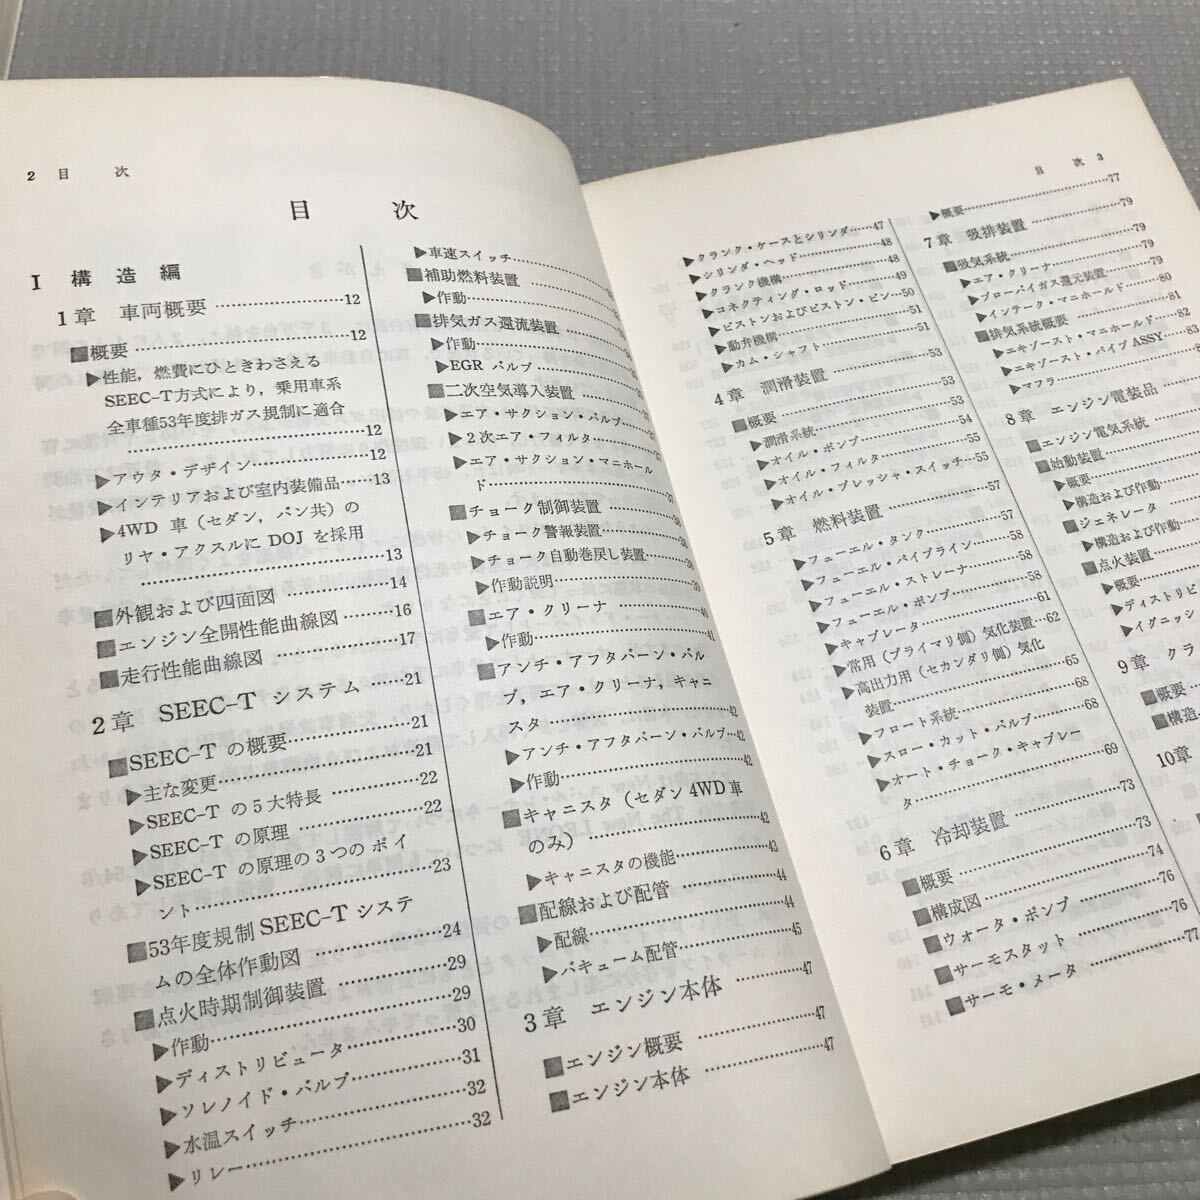 2 目 次
目 次
I 構造編
1章 車両概要 ……………… 12
■概要 ……………………… 12
▶性能，燃費にひときわさえる
SEEC-T方式により，乗用車系
全車種53年度排ガス規制に適合
……………………… 12
▶アウタ・デザイン …………… 12
▶インテリアおよび室内装備品 …… 13
▶4WD 車（セダン，バン共）の
リヤ・アクスルに DOJ を採用
……………………… 13
■外観および四面図 …………… 14
■エンジン全開性能曲線図 ……… 16
■走行性能曲線図 ……………… 17
2章 SEEC-T システム …… 21
■SEEC-T の概要 ……………… 21
▶主な変更 ……………………… 21
▶SEEC-T の5大特長 ………… 22
▶SEEC-T の原理 ……………… 22
▶SEEC-T の原理の3つのポイ
ント ……………………… 23
■53年度規制 SEEC-T システ
ムの全体作動図 ……………… 24
■点火時期制御装置 …………… 29
▶作動 ……………………… 29
▶ディストリビュータ ………… 30
▶ソレノイド・バルブ ………… 31
▶水温スイッチ ……………… 32
▶リレー ……………………… 32
▶車速スイッチ ………………
■補助燃料装置 ………………
▶作動 ………………………
■排気ガス還流装置 …………
▶作動 ………………………
▶EGR バルブ ………………
■二次空気導入装置 …………
▶エア・サクション・バルブ ……
▶2次エア・フィルタ …………
▶エア・サクション・マニホール
ド ………………………
■チョーク制御装置 …………
▶チョーク警報装置 ………… 38
▶チョーク自動巻戻し装置 …… 38
▶作動説明 ……………… 39
■エア・クリーナ …………… 40
▶作動 ……………………… 41
■アンチ・アフタバーン・バル
ブ，エア・クリーナ，キャニ
スタ ……………………… 42
▶アンチ・アフタバーン・バルブ … 42
▶作動 ……………………… 42
■キャニスタ（セダン 4WD車
のみ） ……………………… 42
▶キャニスタの機能 ………… 43
■配線および配管 …………… 44
▶配線 ……………………… 44
▶バキューム配管 …………… 45
3章 エンジン本体 ………… 47
■エンジン概要 ……………… 47
■エンジン本体 ……………… 47
目 次 3
▶クランク・ケースとシリンダ …… 47
▶シリンダ・ヘッド ……………… 48
▶クランク機構 ……………… 48
▶コネクティング・ロッド ……… 49
▶ピストンおよびピストン・ピン … 50
▶動弁機構 ……………… 51
▶カム・シャフト ……………… 51
4章 潤滑装置 ……………… 53
■概要 ……………………… 53
▶潤滑系統 ……………… 53
▶オイル・ポンプ ……………… 54
▶オイル・フィルタ …………… 55
▶オイル・プレッシャ・スイッチ … 55
5章 燃料装置 ……………… 57
▶フューエル・タンク ………… 57
▶フューエル・パイプライン …… 58
▶フューエル・ストレーナ ……… 58
▶フューエル・ポンプ ………… 58
▶キャブレータ ……………… 61
▶常用（プライマリ側）気化装置 … 62
▶高出力用（セカンダリ側）気化
装置 ……………………… 65
▶フロート系統 ……………… 68
▶スロー・カット・バルブ ……… 68
▶オート・チョーク・キャブレー
タ ……………………… 69
6章 冷却装置 ……………… 73
■概要 ……………………… 73
■構成図 ……………… 74
■ウォータ・ポンプ …………… 76
■サーモスタット ……………… 76
■サーモ・メータ ……………… 77
▶概要 ……………………… 77
7章 吸排装置 ……………… 79
■吸気系統 ……………… 79
▶エア・クリーナ ……………… 79
▶ブローバイガス還元装置 ……… 79
▶インテーク・マニホールド …… 80
■排気系統概要 ……………… 81
▶エキゾースト・マニホールド …… 82
▶エキゾースト・パイプ ASSY …… 83
▶マフラ ………………
8章 エンジン電装品
■エンジン電気系統
■始動装置
▶概要
▶構造および作動
■ジェネレータ
▶構造および作動
■点火装置
▶概要
▶ディストリビ
▶イグニッシ
9章 クラ
■概要
■構造
10章